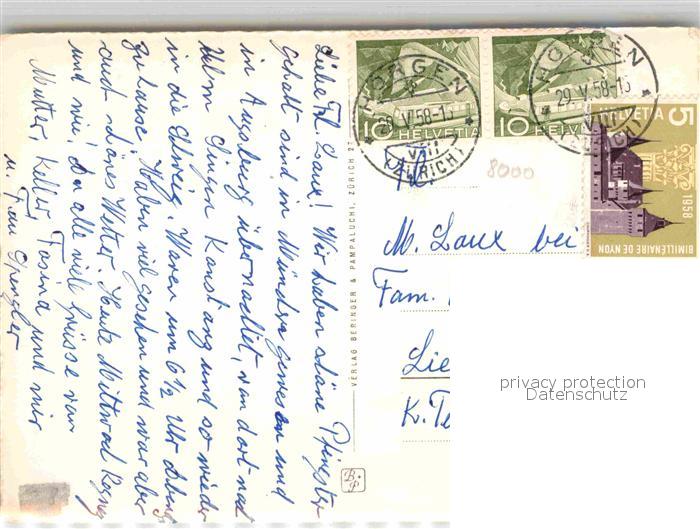 Liebe Frl. Laux! Wir haben schöne Pfingsten
gehabt sind in München gewesen und
in Augsburg übernachtet, von dort nach
Ulm Singen Konstanz und so wieder
in die Schweiz. Waren um 6 1/2 Uhr Abends
zuhause. Haben viel gesehen und war aber
auch schönes Wetter. Heute Mittwoch Regnet
und wie! Da alle viele Grüsse von
Mutter, Keller, Tosina und mir
u. Frau Spengler
VERLAG BERINGER & PAMPALUCHI, ZÜRICH 27
B. P
HORGEN
29.V.58-13
(ZÜRICH)
10 HELVETIA
HORGEN
29.V.58-13
(ZÜRICH)
10 HELVETIA
HELVETIA 5
1958
BIMILLÉNAIRE DE NYON
8000
Frl.
M. Laux bei
Fam.
Lie
K. Te
privacy protection
Datenschutz